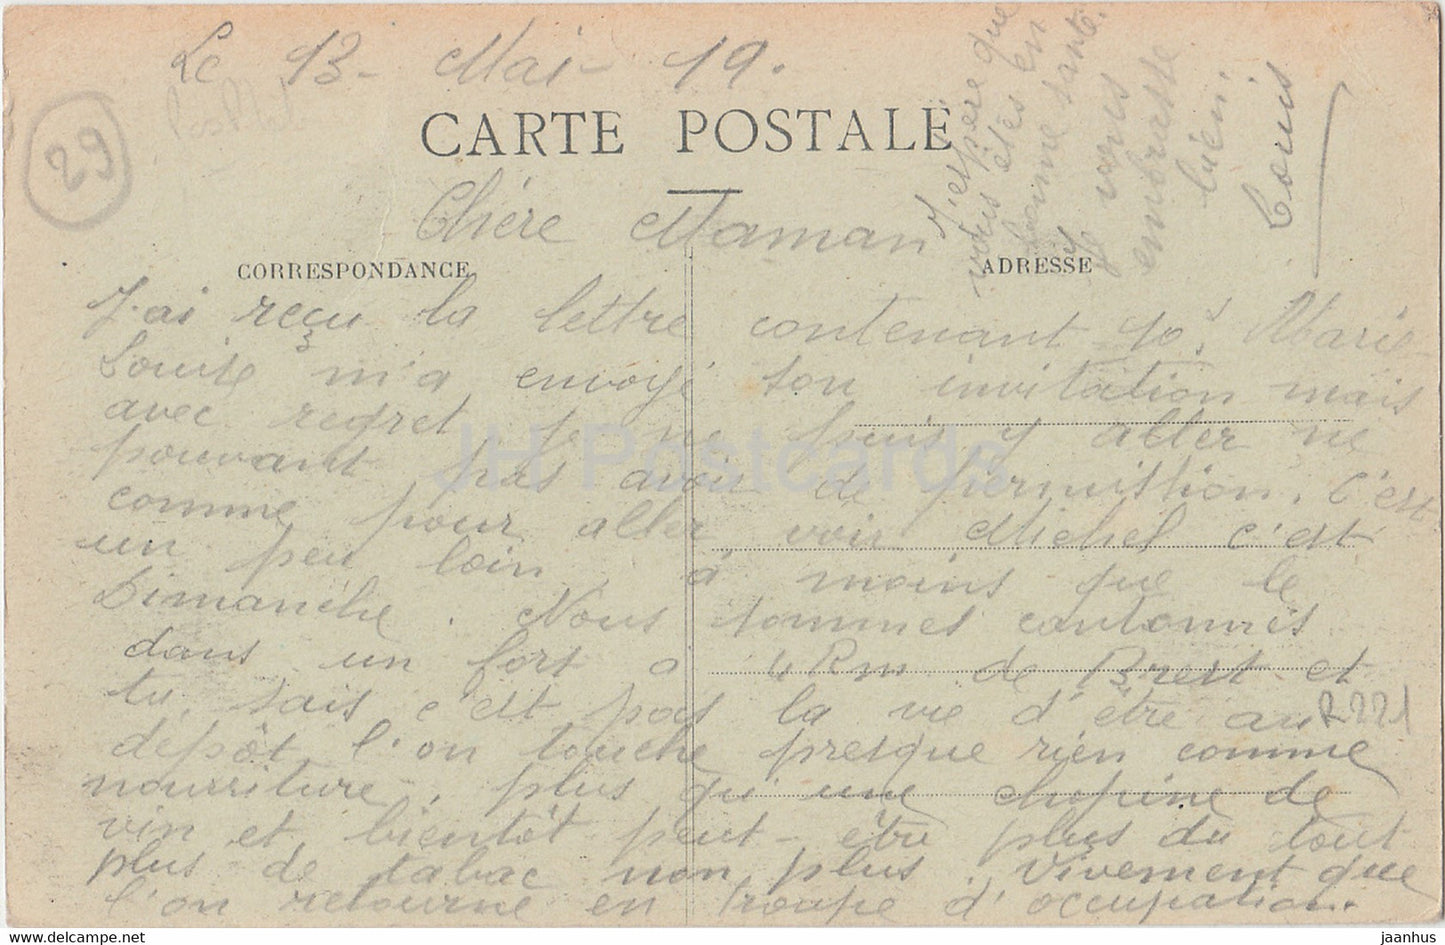 Le 13 - Mai - 19.
29
CARTE POSTALE
Chère Maman
CORRESPONDANCE
ADRESSE
J'ai reçu la lettre contenant 10f. Marie-
Louise m'a envoyé son invitation mais
avec regret je ne puis y aller ne
pouvant pas avoir de permission. C'est
comme pour aller voir Michel c'est
un peu loin, à moins que le
Dimanche. Nous sommes cantonnés
dans un fort a 4 Km de Brest et
tu sais c'est pas la vie d'être au
dépôt l'on touche presque rien comme
nourriture, plus qu'une chopine de
vin et bientôt peut-être plus du tout
plus de tabac non plus. Vivement que
l'on retourne en troupe d'occupation.
J'espère que
vous êtes en
bonne santé.
Je vous
embrasse
bien.
Louis
R221
JH Postcards
www.delcampe.net
jaanhus